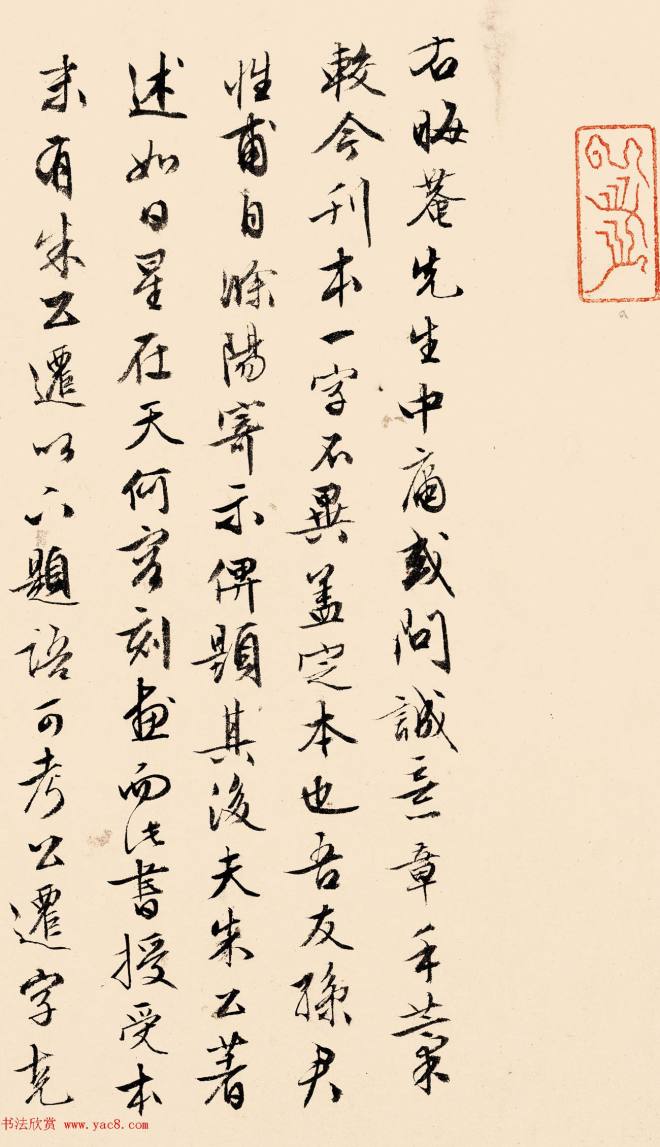 右晦菴先生中庸或問誠意章手藁
較今刊本一字不異盖定本也吾友孫君
性甫自滁陽寄示俾題其後夫朱公著
述如日星在天何容刻畫而此書授受本
末有朱公遷以下題語可考公遷字克
书法欣赏 www.yac8.com